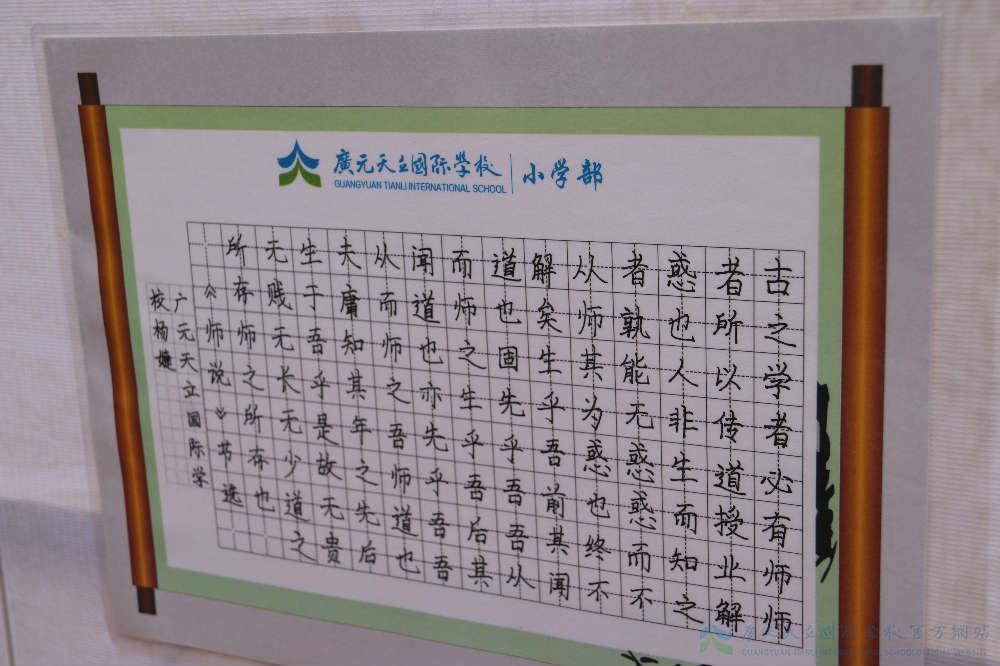 廣元天立國际學校
GUANGYUAN TIANLI INTERNATIONAL SCHOOL
小学部
古之学者必有师师
者所以传道授业解
惑也人非生而知之
者孰能无惑惑而不
从师其为惑也终不
解矣生乎吾前其闻
道也固先乎吾吾从
而师之生乎吾后其
闻道也亦先乎吾吾
从而师之吾师道也
夫庸知其年之先后
生于吾乎是故无贵
无贱无长无少道之
所存师之所存也
《师说》节选
广元天立国际学
校杨
廣元天立國际學校官方網站
GUANGYUAN TIANLI INTERNATIONAL SCHOOL OFFICIAL WEBSITE